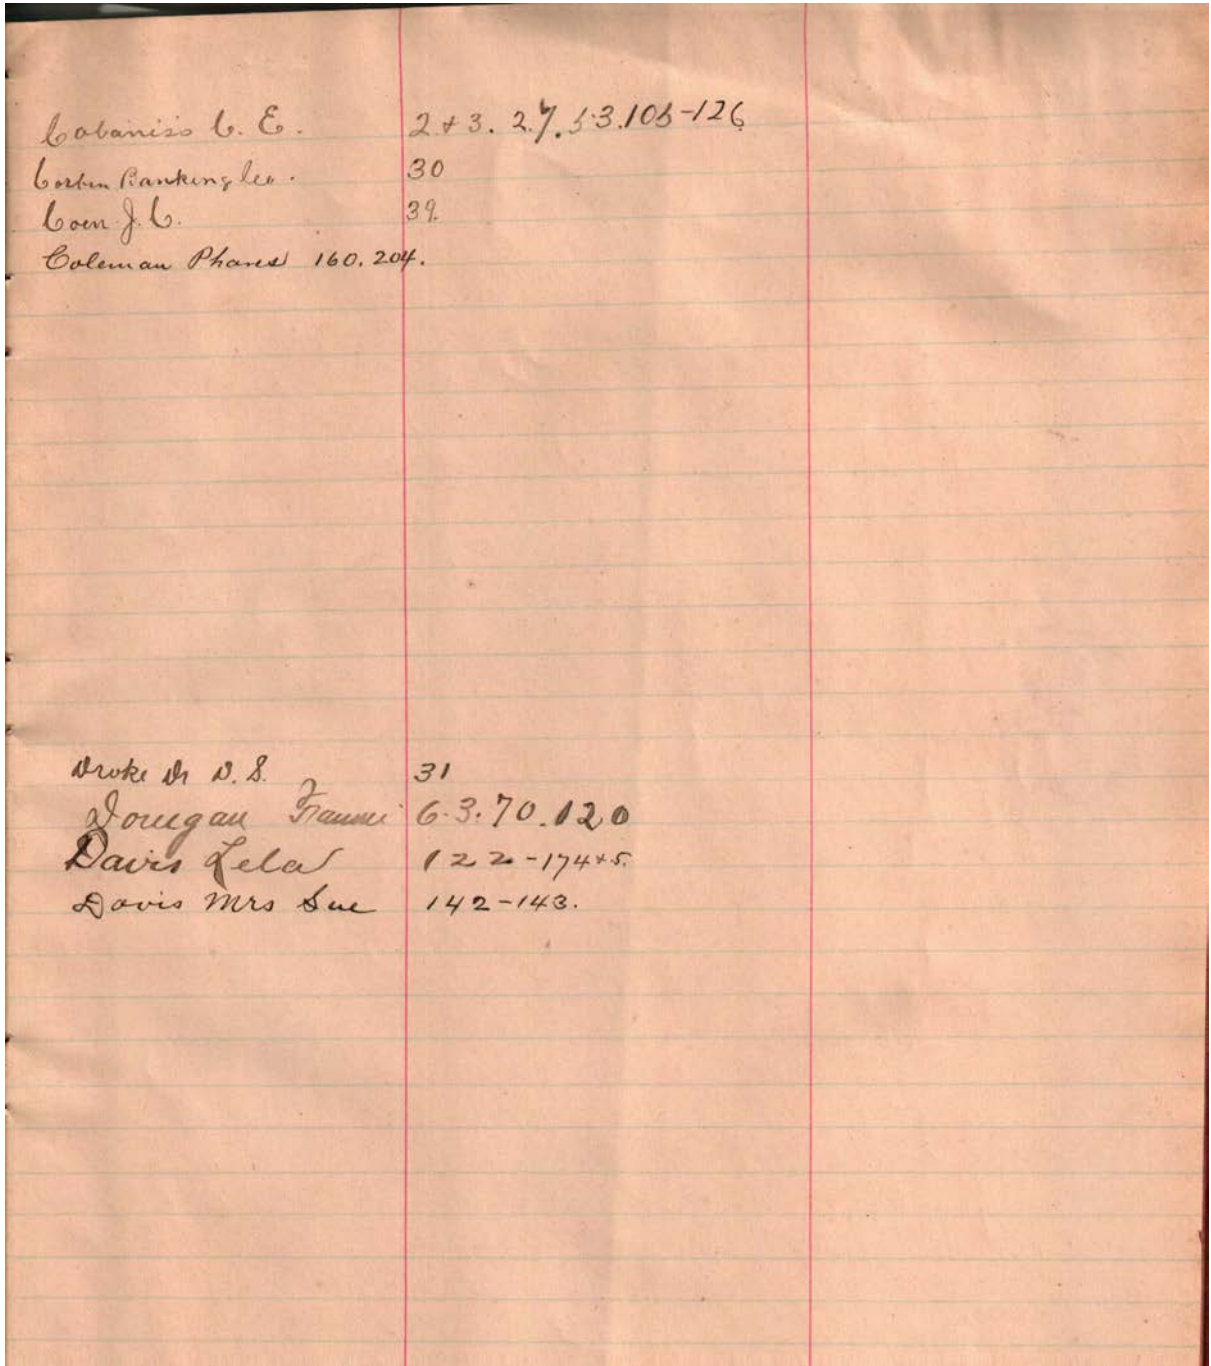 Cabaniss C. E. 2+3. 27. 53. 105-126
Corbin Banking Co. 30
Coen J. C. 39.
Coleman Phares 160. 204.
Droke Dr D. S. 31
Donegan Fannie 6.3. 70. 120
Davis Lela 122-174+5.
Davis Mrs Sue 142-143.